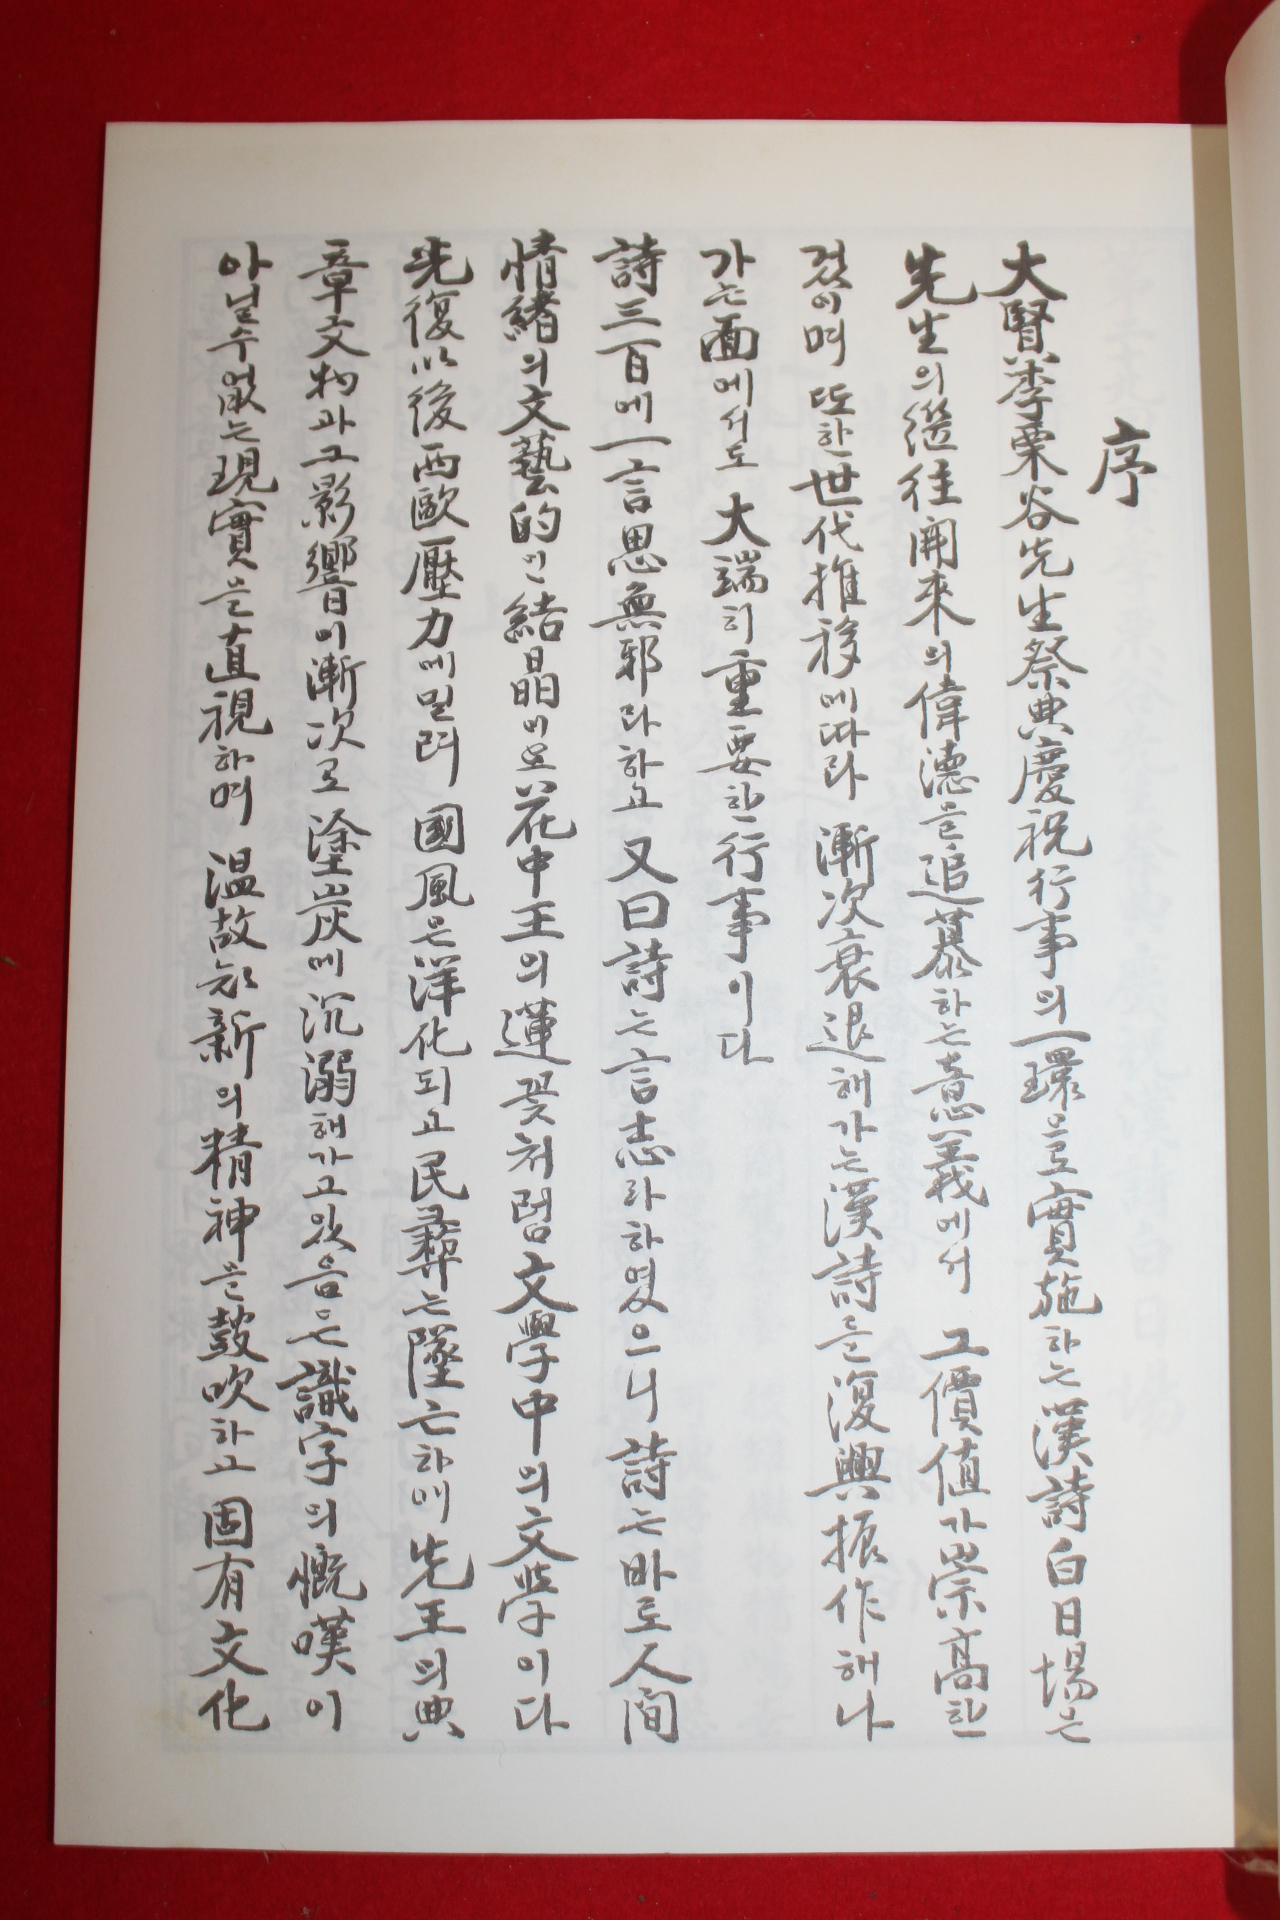 序
大賢李栗谷先生祭典慶祝行事의一環으로實施하는漢詩白日場은
先生의繼往開來의偉德을追慕하는意義에서 그價値가崇高한
것이며 또한世代推移에따라 漸次衰退해가는漢詩를復興振作해나
가는面에서도 大端히重要한行事이다
詩三百에一言思無邪라하고 又曰詩는言志라하였으니 詩는바로人間
情緖의文藝的인結晶이요花中王의蓮꽃처럼文學中의文學이다
光復以後西歐壓力에밀려 國風은洋化되고民彛는墜亡하매先王의典
章文物과그影響이漸次로塗炭에沉溺해가고있음은識字의慨嘆이
아닐수없는現實을直視하며 温故知新의精神을鼓吹하고 固有文化